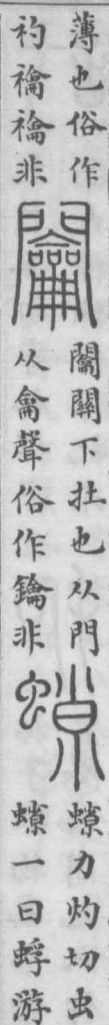 薄也俗作
礿禴禴非
𨷲關下牡也从門
从龠聲俗作鑰非
力灼切虫
一曰蜉游